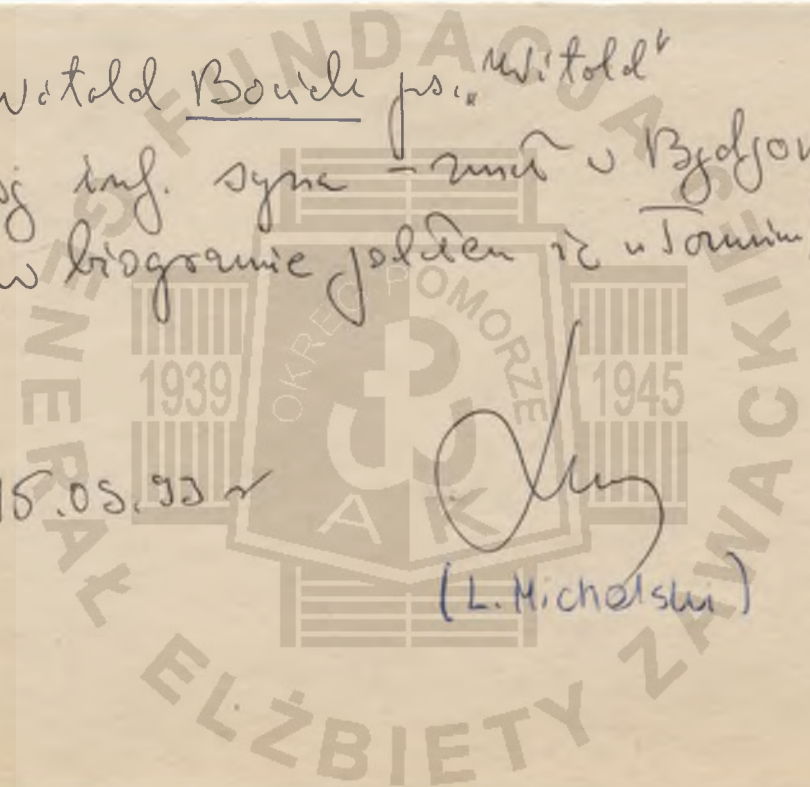 Witold Bonich ps. „Witold"
wg inf. syna – zmarł w Bydgos
w biogramie podałem iż w Toruniu,
15.05.93 r
(L. Michalski)
FUNDACJA GENERAŁ ELŻBIETY ZAWACKIEJ
OKRĘG POMORZE
1939
1945
AK